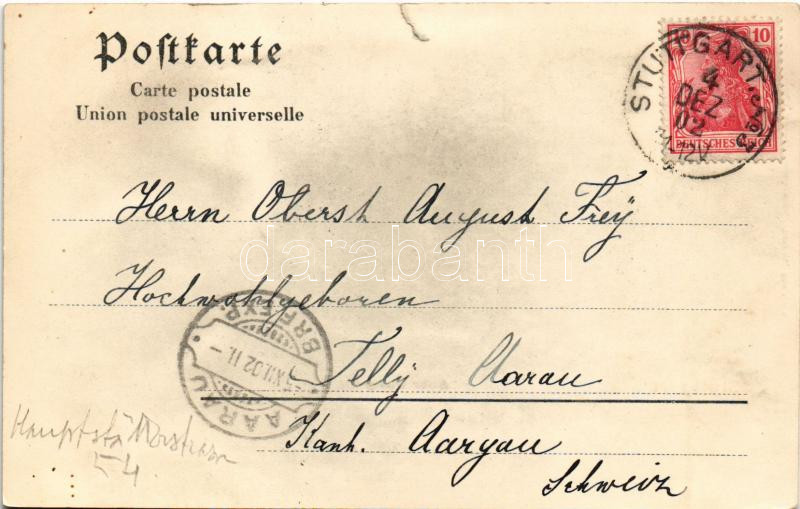 Postkarte
Carte postale
Union postale universelle
10
DEUTSCHES REICH
STUTTGART
4
DEZ
02
Herrn Oberst August Frey
Hochwohlgeboren
Telly Aarau
Kant. Aargau
Schweiz
AARAU
XII.02 11
BRF.EXP.
Hauptstätterstrasse
54.
darabanth